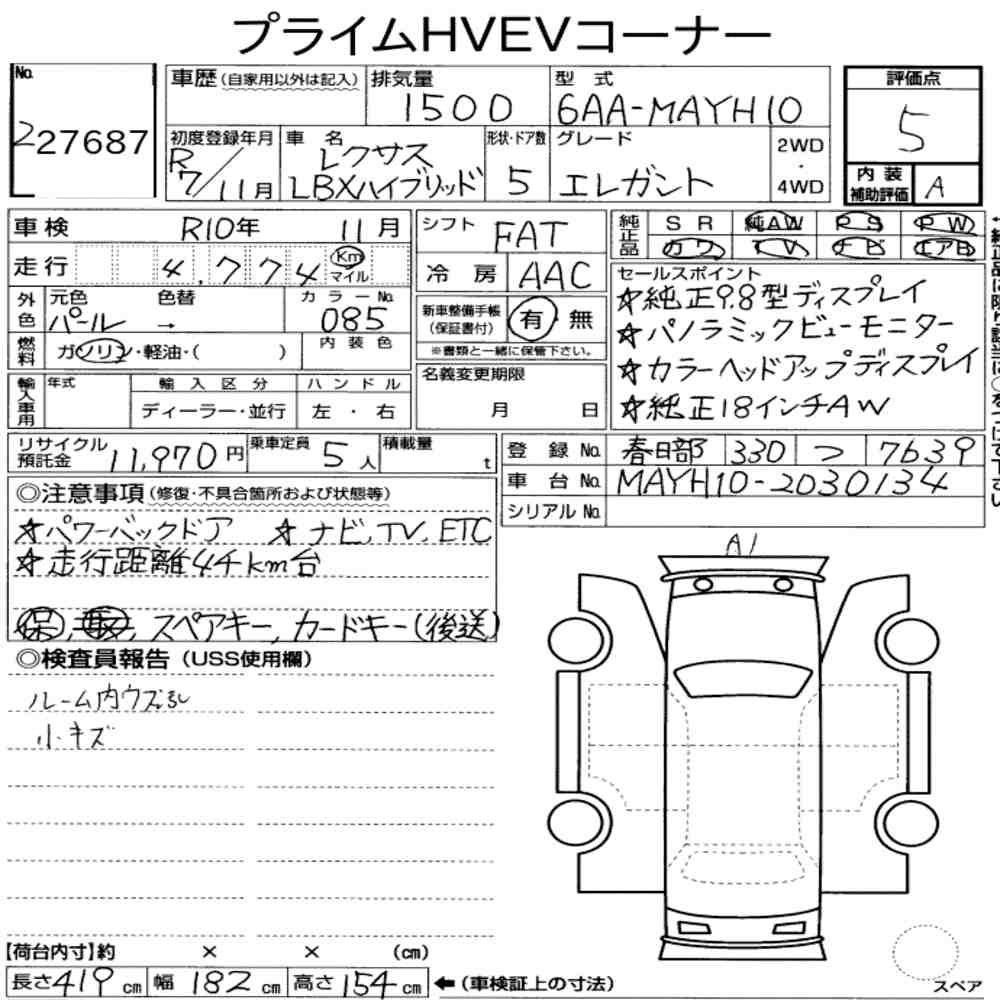 プライムHVEVコーナー
No. 227687
車歴(自家用以外は記入)
排気量 1500
型式 6AA-MAYH10
評価点 5
内装補助評価 A
初度登録年月 R7/11月
車名 レクサス LBXハイブリッド
形状・ドア数 5
グレード エレガント
2WD・4WD
車検 R10年 11月
走行 4,774 Km マイル
シフト FAT
冷房 AAC
純正品 SR 純AW PS PW
カワ TV ナビ エアB
外色 元色 パール → 色替 カラーNo. 085
内装色
燃料 ガソリン・軽油・( )
新車整備手帳(保証書付) 有 無
※書類と一緒に保管下さい。
セールスポイント
☆純正9.8型ディスプレイ
☆パノラミックビューモニター
☆カラーヘッドアップディスプレイ
☆純正18インチAW
輸入車用 年式 輸入区分 ディーラー・並行 ハンドル 左・右
名義変更期限 月 日
リサイクル預託金 11,970円
乗車定員 5人
積載量 t
登録No. 春日部 330 つ 7639
車台No. MAYH10-2030134
シリアルNo.
◎注意事項(修復・不具合箇所および状態等)
☆パワーバックドア ☆ナビ,TV,ETC
☆走行距離4千km台
保,取,スペアキー,カードキー(後送)
◎検査員報告(USS使用欄)
ルーム内ウスヨゴレ
小キズ
A1
【荷台内寸】約 × × (cm)
長さ419cm 幅182cm 高さ154cm ←(車検証上の寸法)
スペア